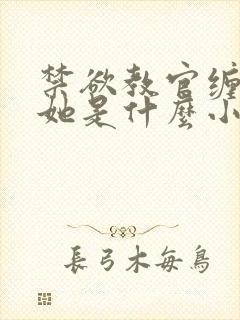 禁欲教官缠
她是什麽小
長弓木每鳥